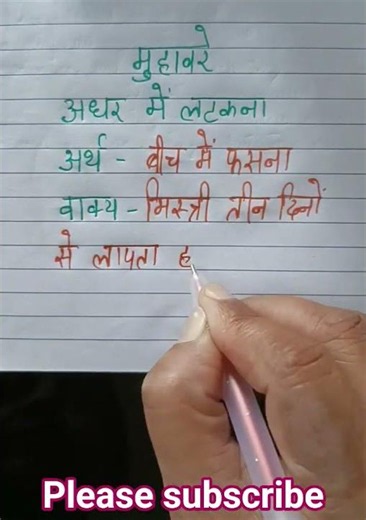 मुहावरे
अधर में लटकना
अर्थ - बीच में फसना
वाक्य - मिस्त्री तीन दिनों
से लापता ह
Please subscribe